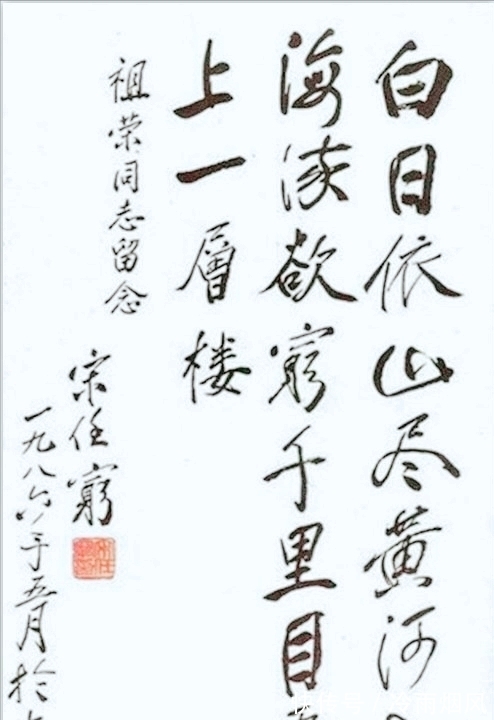 白日依山尽黄河
海流欲窮千里目
上一層楼
祖荣同志留念
宋任窮
一九八六年五月於